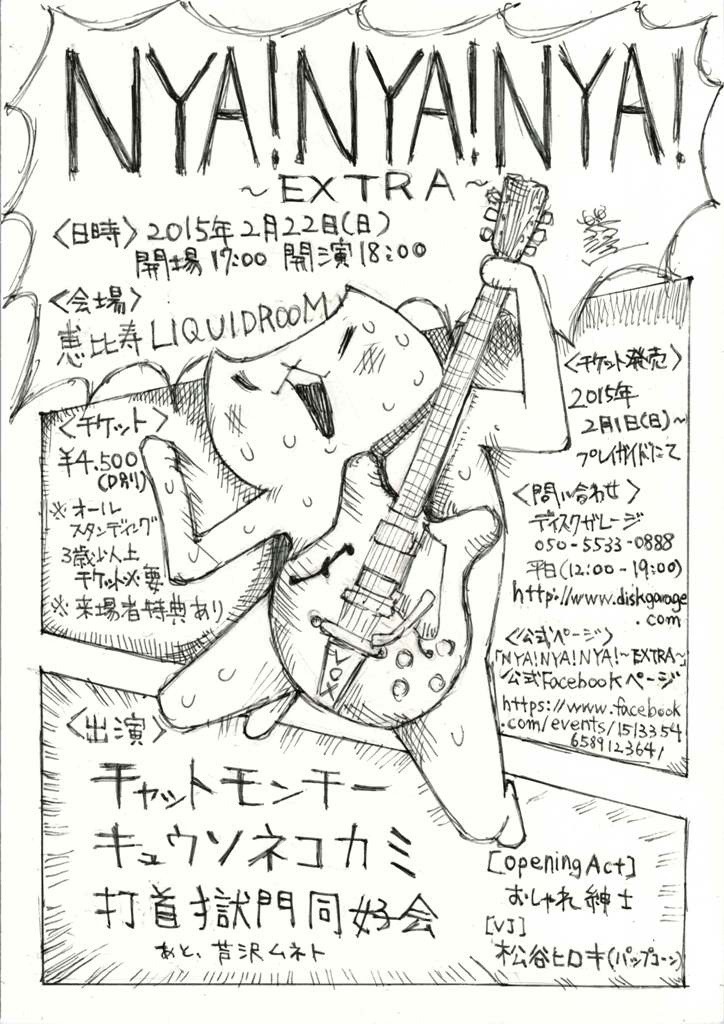 NYA!NYA!NYA!
～EXTRA～
〈日時〉2015年2月22日(日)
開場17:00 開演18:00
〈会場〉
恵比寿LIQUIDROOM
〈チケット〉
¥4.500
(D別)
※オール
スタンディング
3歳以上
チケット必要
※来場者特典あり
〈チケット発売〉
2015年
2月1日(日)～
プレイガイドにて
〈問い合わせ〉
ディスクガレージ
050-5533-0888
平日(12:00-19:00)
http://www.diskgarage
.com
〈公式ページ〉
「NYA!NYA!NYA!～EXTRA～」
公式Facebookページ
https://www.facebook
.com/events/1513354
658912364/
VOX
〈出演〉
チャットモンチー
キュウソネコカミ
打首獄門同好会
あと、芦沢ムネト
[opening Act]
おしゃれ紳士
[VJ]
松谷ヒロキ(パップコーン)